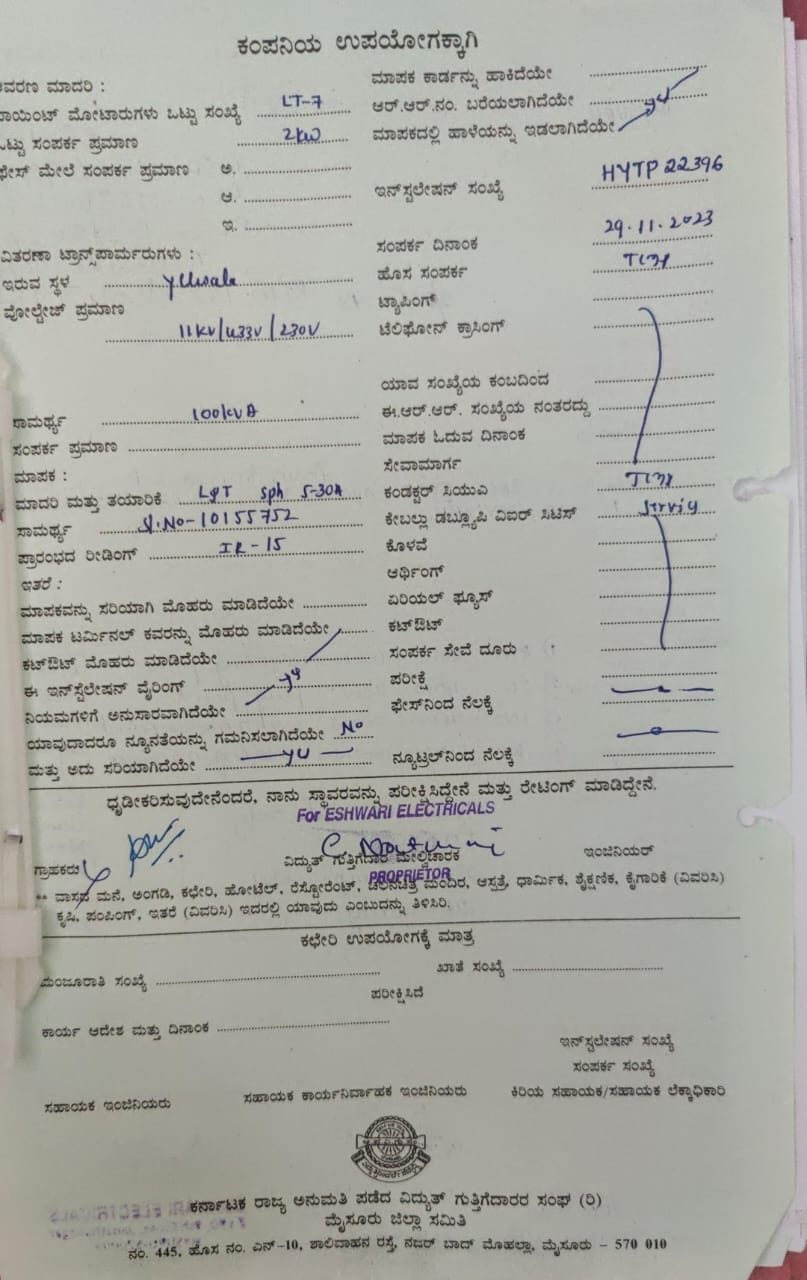 ಕಂಪನಿಯ ಉಪಯೋಗಕ್ಕಾಗಿ
ಆವರಣ ಮಾದರಿ :
ಪಾಯಿಂಟ್ ಮೋಟಾರುಗಳು ಒಟ್ಟು ಸಂಖ್ಯೆ LT-7
ಒಟ್ಟು ಸಂಪರ್ಕ ಪ್ರಮಾಣ 2kW
ಫೇಸ್ ಮೇಲೆ ಸಂಪರ್ಕ ಪ್ರಮಾಣ ಅ.
ಆ.
ಇ.
ವಿತರಣಾ ಟ್ರಾನ್ಸ್‌ಫಾರ್ಮರುಗಳು :
ಇರುವ ಸ್ಥಳ
ವೋಲ್ಟೇಜ್ ಪ್ರಮಾಣ
11kV/433V/230V
ಸಾಮರ್ಥ್ಯ 100kVA
ಸಂಪರ್ಕ ಪ್ರಮಾಣ
ಮಾಪಕ :
ಮಾದರಿ ಮತ್ತು ತಯಾರಿಕೆ L&T sph 5-30A
ಸಾಮರ್ಥ್ಯ Sl.No-10155752
ಪ್ರಾರಂಭದ ರೀಡಿಂಗ್ IR-15
ಇತರೆ :
ಮಾಪಕವನ್ನು ಸರಿಯಾಗಿ ಮೊಹರು ಮಾಡಿದೆಯೇ
ಮಾಪಕ ಟರ್ಮಿನಲ್ ಕವರನ್ನು ಮೊಹರು ಮಾಡಿದೆಯೇ
ಕಟ್‌ಔಟ್ ಮೊಹರು ಮಾಡಿದೆಯೇ
ಈ ಇನ್‌ಸ್ಟಲೇಷನ್ ವೈರಿಂಗ್
ನಿಯಮಗಳಿಗೆ ಅನುಸಾರವಾಗಿದೆಯೇ
ಯಾವುದಾದರೂ ನ್ಯೂನತೆಯನ್ನು ಗಮನಿಸಲಾಗಿದೆಯೇ No
ಮತ್ತು ಅದು ಸರಿಯಾಗಿದೆಯೇ
ಮಾಪಕ ಕಾರ್ಡನ್ನು ಹಾಕಿದೆಯೇ
ಆರ್.ಆರ್.ನಂ. ಬರೆಯಲಾಗಿದೆಯೇ
ಮಾಪಕದಲ್ಲಿ ಹಾಳೆಯನ್ನು ಇಡಲಾಗಿದೆಯೇ
ಇನ್‌ಸ್ಟಲೇಷನ್ ಸಂಖ್ಯೆ HYTP 22396
ಸಂಪರ್ಕ ದಿನಾಂಕ 29.11.2023
ಹೊಸ ಸಂಪರ್ಕ
ಟ್ಯಾಪಿಂಗ್
ಟೆಲಿಫೋನ್ ಕ್ರಾಸಿಂಗ್
ಯಾವ ಸಂಖ್ಯೆಯ ಕಂಬದಿಂದ
ಈ.ಆರ್.ಆರ್. ಸಂಖ್ಯೆಯ ನಂತರದ್ದು
ಮಾಪಕ ಓದುವ ದಿನಾಂಕ
ಸೇವಾಮಾರ್ಗ
ಕಂಡಕ್ಟರ್ ಸಿಯುಎ
ಕೇಬಲ್ಲು ಡಬ್ಲ್ಯೂಪಿ ವಿಐರ್ ಸಿಟಿಸ್
ಕೊಳವೆ
ಆರ್ಥಿಂಗ್
ಏರಿಯಲ್ ಫ್ಯೂಸ್
ಕಟ್‌ಔಟ್
ಸಂಪರ್ಕ ಸೇವೆ ದೂರು
ಪರೀಕ್ಷೆ
ಫೇಸ್‌ನಿಂದ ನೆಲಕ್ಕೆ
ನ್ಯೂಟ್ರಲ್‌ನಿಂದ ನೆಲಕ್ಕೆ
ಧೃಢೀಕರಿಸುವುದೇನೆಂದರೆ, ನಾನು ಸ್ಥಾವರವನ್ನು ಪರೀಕ್ಷಿಸಿದ್ದೇನೆ ಮತ್ತು ರೇಟಿಂಗ್ ಮಾಡಿದ್ದೇನೆ.
For ESHWARI ELECTRICALS
ಗ್ರಾಹಕರು ವಿದ್ಯುತ್ ಗುತ್ತಿಗೆದಾರ ಮೇಲ್ವಿಚಾರಕ ಇಂಜಿನಿಯರ್
PROPRIETOR
** ವಾಸದ ಮನೆ, ಅಂಗಡಿ, ಕಛೇರಿ, ಹೋಟೆಲ್, ರೆಸ್ಟೋರೆಂಟ್, ಚಲನಚಿತ್ರ ಮಂದಿರ, ಆಸ್ಪತ್ರೆ, ಧಾರ್ಮಿಕ, ಶೈಕ್ಷಣಿಕ, ಕೈಗಾರಿಕೆ (ವಿವರಿಸಿ)
ಕೃಷಿ, ಪಂಪಿಂಗ್, ಇತರೆ (ವಿವರಿಸಿ) ಇದರಲ್ಲಿ ಯಾವುದು ಎಂಬುದನ್ನು ತಿಳಿಸಿರಿ.
ಕಛೇರಿ ಉಪಯೋಗಕ್ಕೆ ಮಾತ್ರ
ಮಂಜೂರಾತಿ ಸಂಖ್ಯೆ ಖಾತೆ ಸಂಖ್ಯೆ
ಪರೀಕ್ಷಿಸಿದೆ
ಕಾರ್ಯ ಆದೇಶ ಮತ್ತು ದಿನಾಂಕ
ಇನ್‌ಸ್ಟಲೇಷನ್ ಸಂಖ್ಯೆ
ಸಂಪರ್ಕ ಸಂಖ್ಯೆ
ಸಹಾಯಕ ಇಂಜಿನಿಯರು ಸಹಾಯಕ ಕಾರ್ಯನಿರ್ವಾಹಕ ಇಂಜಿನಿಯರು ಕಿರಿಯ ಸಹಾಯಕ/ಸಹಾಯಕ ಲೆಕ್ಕಾಧಿಕಾರಿ
ಕರ್ನಾಟಕ ರಾಜ್ಯ ಅನುಮತಿ ಪಡೆದ ವಿದ್ಯುತ್ ಗುತ್ತಿಗೆದಾರರ ಸಂಘ (ರಿ)
ಮೈಸೂರು ಜಿಲ್ಲಾ ಸಮಿತಿ
ನಂ. 445, ಹೊಸ ನಂ. ಎನ್-10, ಶಾಲಿವಾಹನ ರಸ್ತೆ, ನಜರ್ ಬಾದ್ ಮೊಹಲ್ಲಾ, ಮೈಸೂರು - 570 010